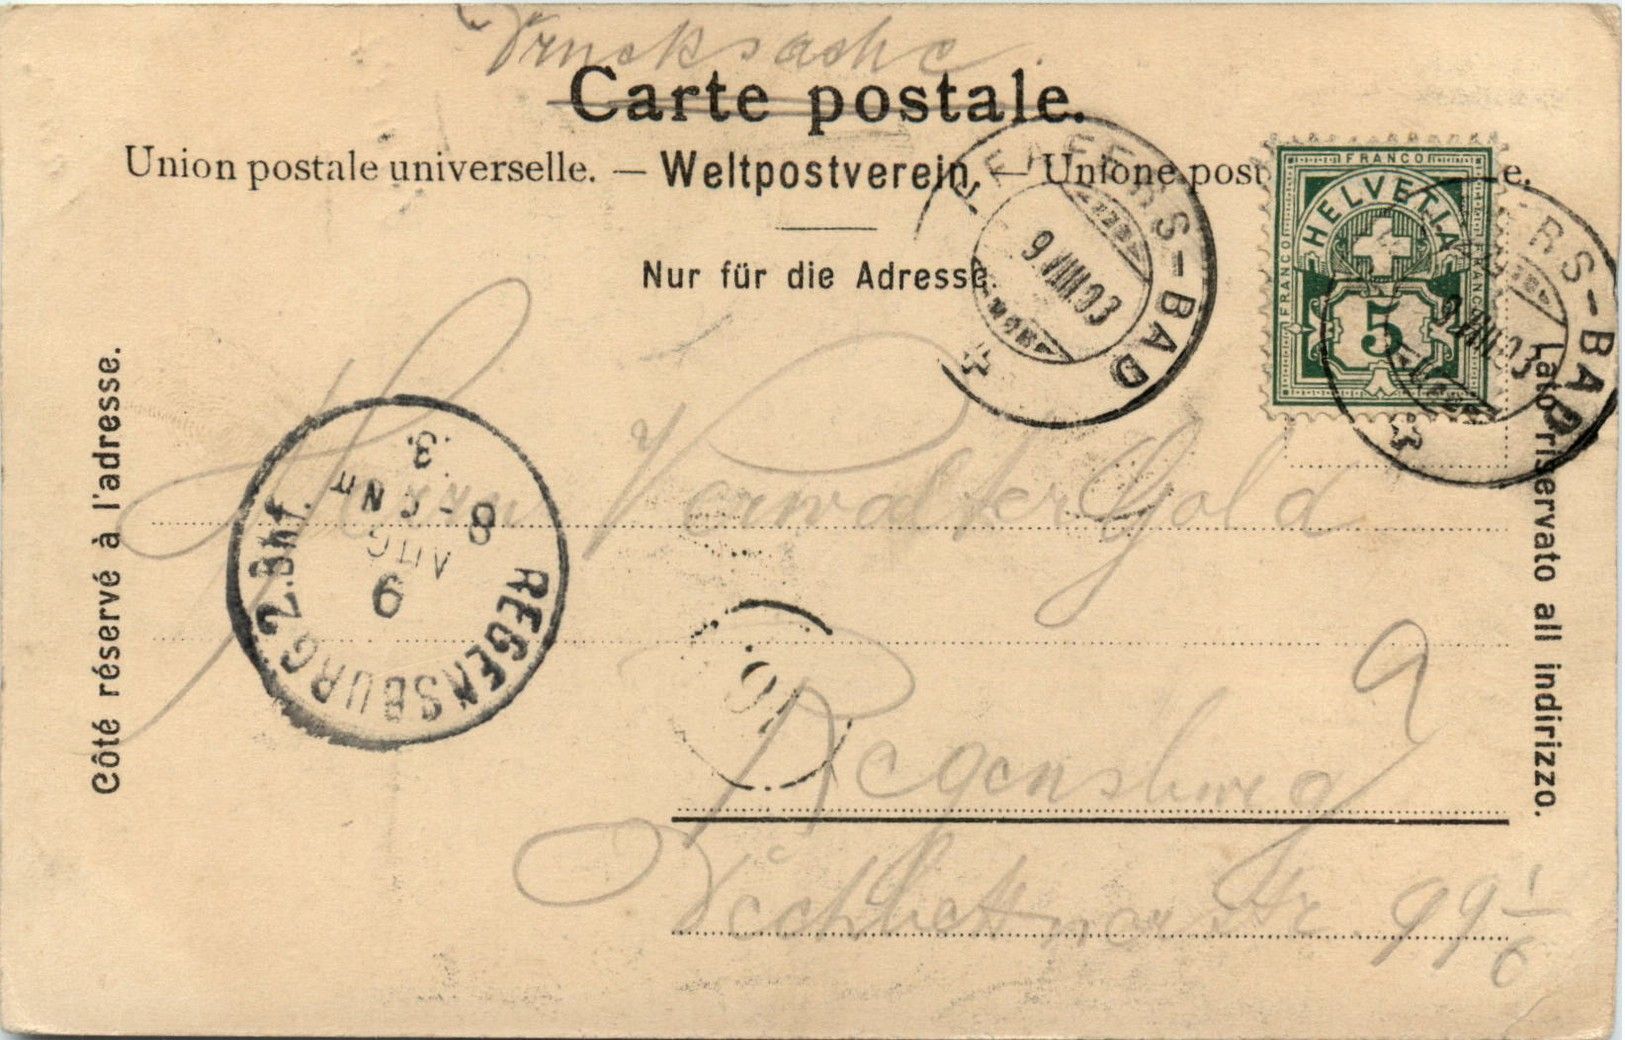 Drucksache.
Carte postale.
Union postale universelle. — Weltpostverein. — Unione post e.
Nur für die Adresse.
Côté réservé à l'adresse.
Lato riservato all indirizzo.
FRANCO
HELVETIA
FRANCO
FRANCO
5
RS-BAD
9 VIII 03
RS-BAD
9 VIII 03
REGENSBURG 2. Bhf.
9
AUG
8-
N
3.
Herrn Verwalter Gold
Regensburg
Vechlettner Str. 99 1/6